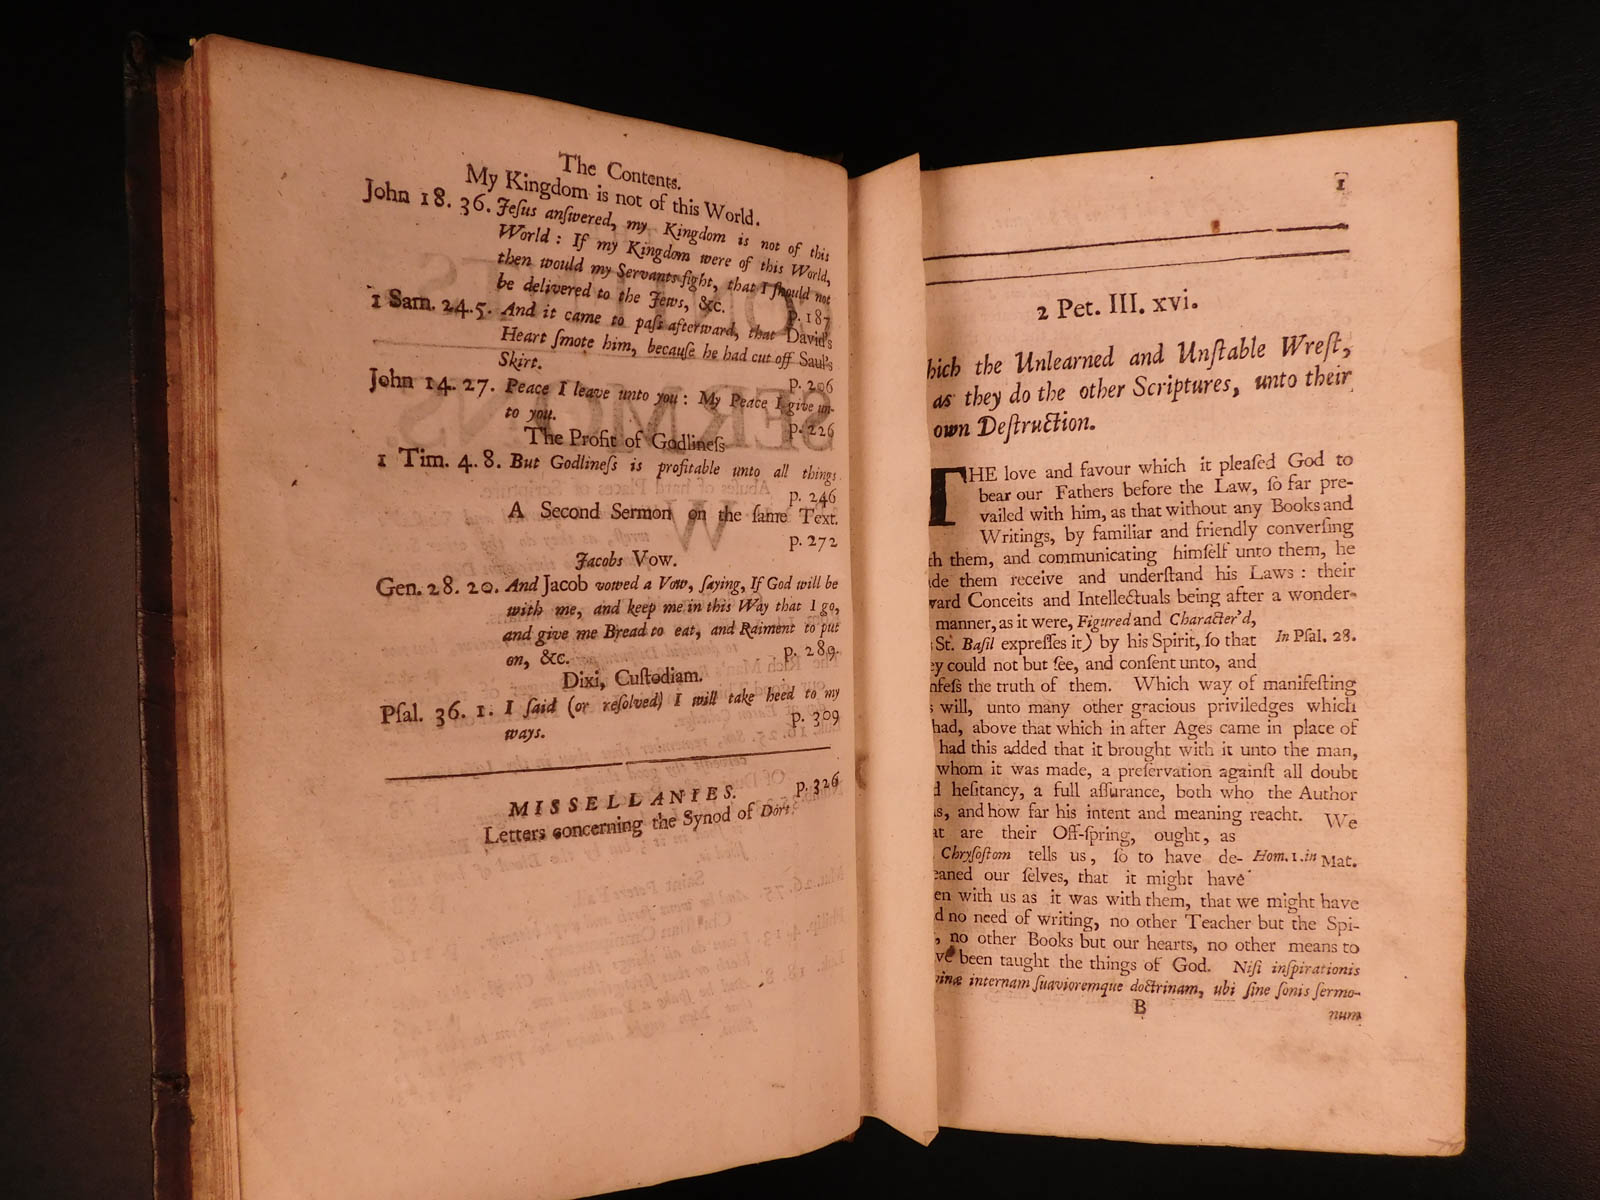 The Contents.
My Kingdom is not of this World.
John 18. 36. Jeſus anſwered, my Kingdom is not of this
World : If my Kingdom were of this World,
then would my Servants fight, that I ſhould not
be delivered to the Jews, &c.
p. 187
1 Sam. 24.5. And it came to paſs afterward, that David's
Heart ſmote him, becauſe he had cut off Saul's
Skirt.
p. 206
John 14. 27. Peace I leave unto you : My Peace I give un-
to you.
p. 226
The Profit of Godlineſs
1 Tim. 4. 8. But Godlineſs is profitable unto all things
p. 246
A Second Sermon on the ſame Text.
p. 272
Jacobs Vow.
Gen. 28. 20. And Jacob vowed a Vow, ſaying, If God will be
with me, and keep me in this Way that I go,
and give me Bread to eat, and Raiment to put
on, &c.
p. 289.
Dixi, Cuſtodiam.
Pſal. 36. 1. I ſaid (or reſolved) I will take heed to my
ways.
p. 309
MISSELLANIES.
p. 326
Letters concerning the Synod of Dort.
1
2 Pet. III. xvi.
hich the Unlearned and Unſtable Wreſt,
as they do the other Scriptures, unto their
own Deſtruction.
THE love and favour which it pleaſed God to
bear our Fathers before the Law, ſo far pre-
vailed with him, as that without any Books and
Writings, by familiar and friendly converſing
th them, and communicating himſelf unto them, he
de them receive and underſtand his Laws : their
ward Conceits and Intellectuals being after a wonder-
manner, as it were, Figured and Character'd,
St. Baſil expreſſes it) by his Spirit, ſo that
In Pſal. 28.
ey could not but ſee, and conſent unto, and
nfeſs the truth of them. Which way of manifeſting
s will, unto many other gracious priviledges which
had, above that which in after Ages came in place of
had this added that it brought with it unto the man,
whom it was made, a preſervation againſt all doubt
d heſitancy, a full aſſurance, both who the Author
s, and how far his intent and meaning reacht. We
at are their Off-ſpring, ought, as
Chryſoſtom tells us, ſo to have de-
Hom. 1. in Mat.
eaned our ſelves, that it might have
en with us as it was with them, that we might have
d no need of writing, no other Teacher but the Spi-
, no other Books but our hearts, no other means to
ve been taught the things of God. Niſi inſpirationis
vinæ internam ſuavioremque doctrinam, ubi ſine ſonis ſermo-
B
num